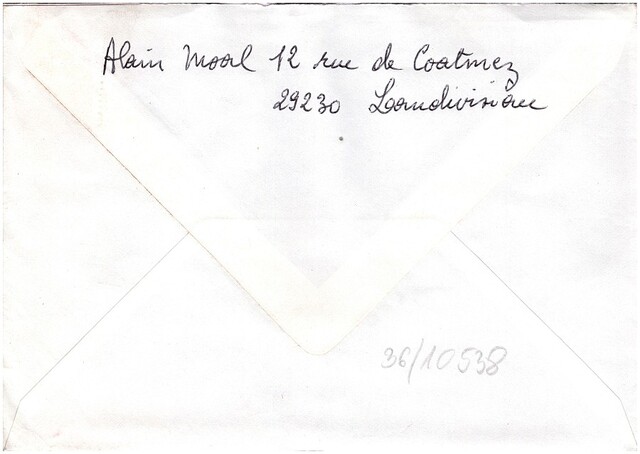 Alain Moal 12 rue de Coatmez
29230 Landivisiau
36/10538